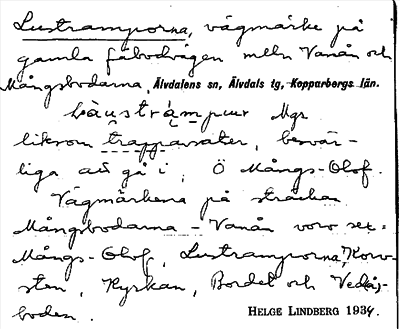 Lustramporna, vägmärke på
gamla fäbodvägen mlln Vanån och
Mångsbodarna, Älvdalens sn, Älvdals tg, Kopparbergs län.
likrom trappsåter, besvär-
liga att gå i, Ö Mångs-Olof.
Vägmärkena på sträckan
Mångsbodarna - Vanån voro sex:
Mångs-Olof, Lustramporna, Korv-
sten, Kyrkan, Bordet och Vedås-
boden.
HELGE LINDBERG 1934.